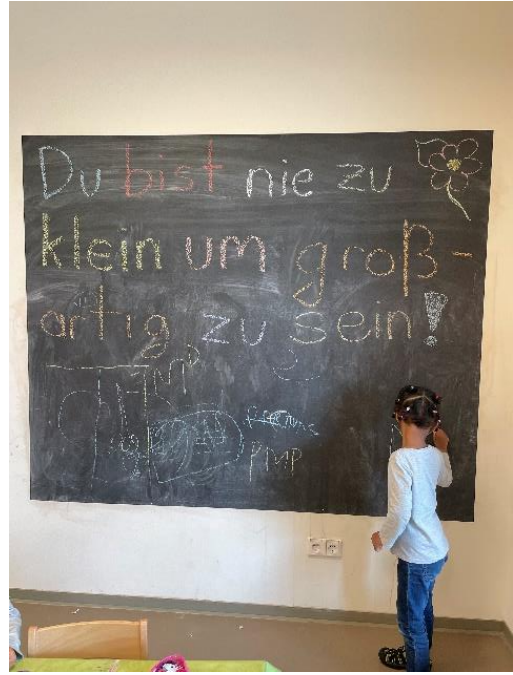 Du bist nie zu
klein um groß-
artig zu sein!